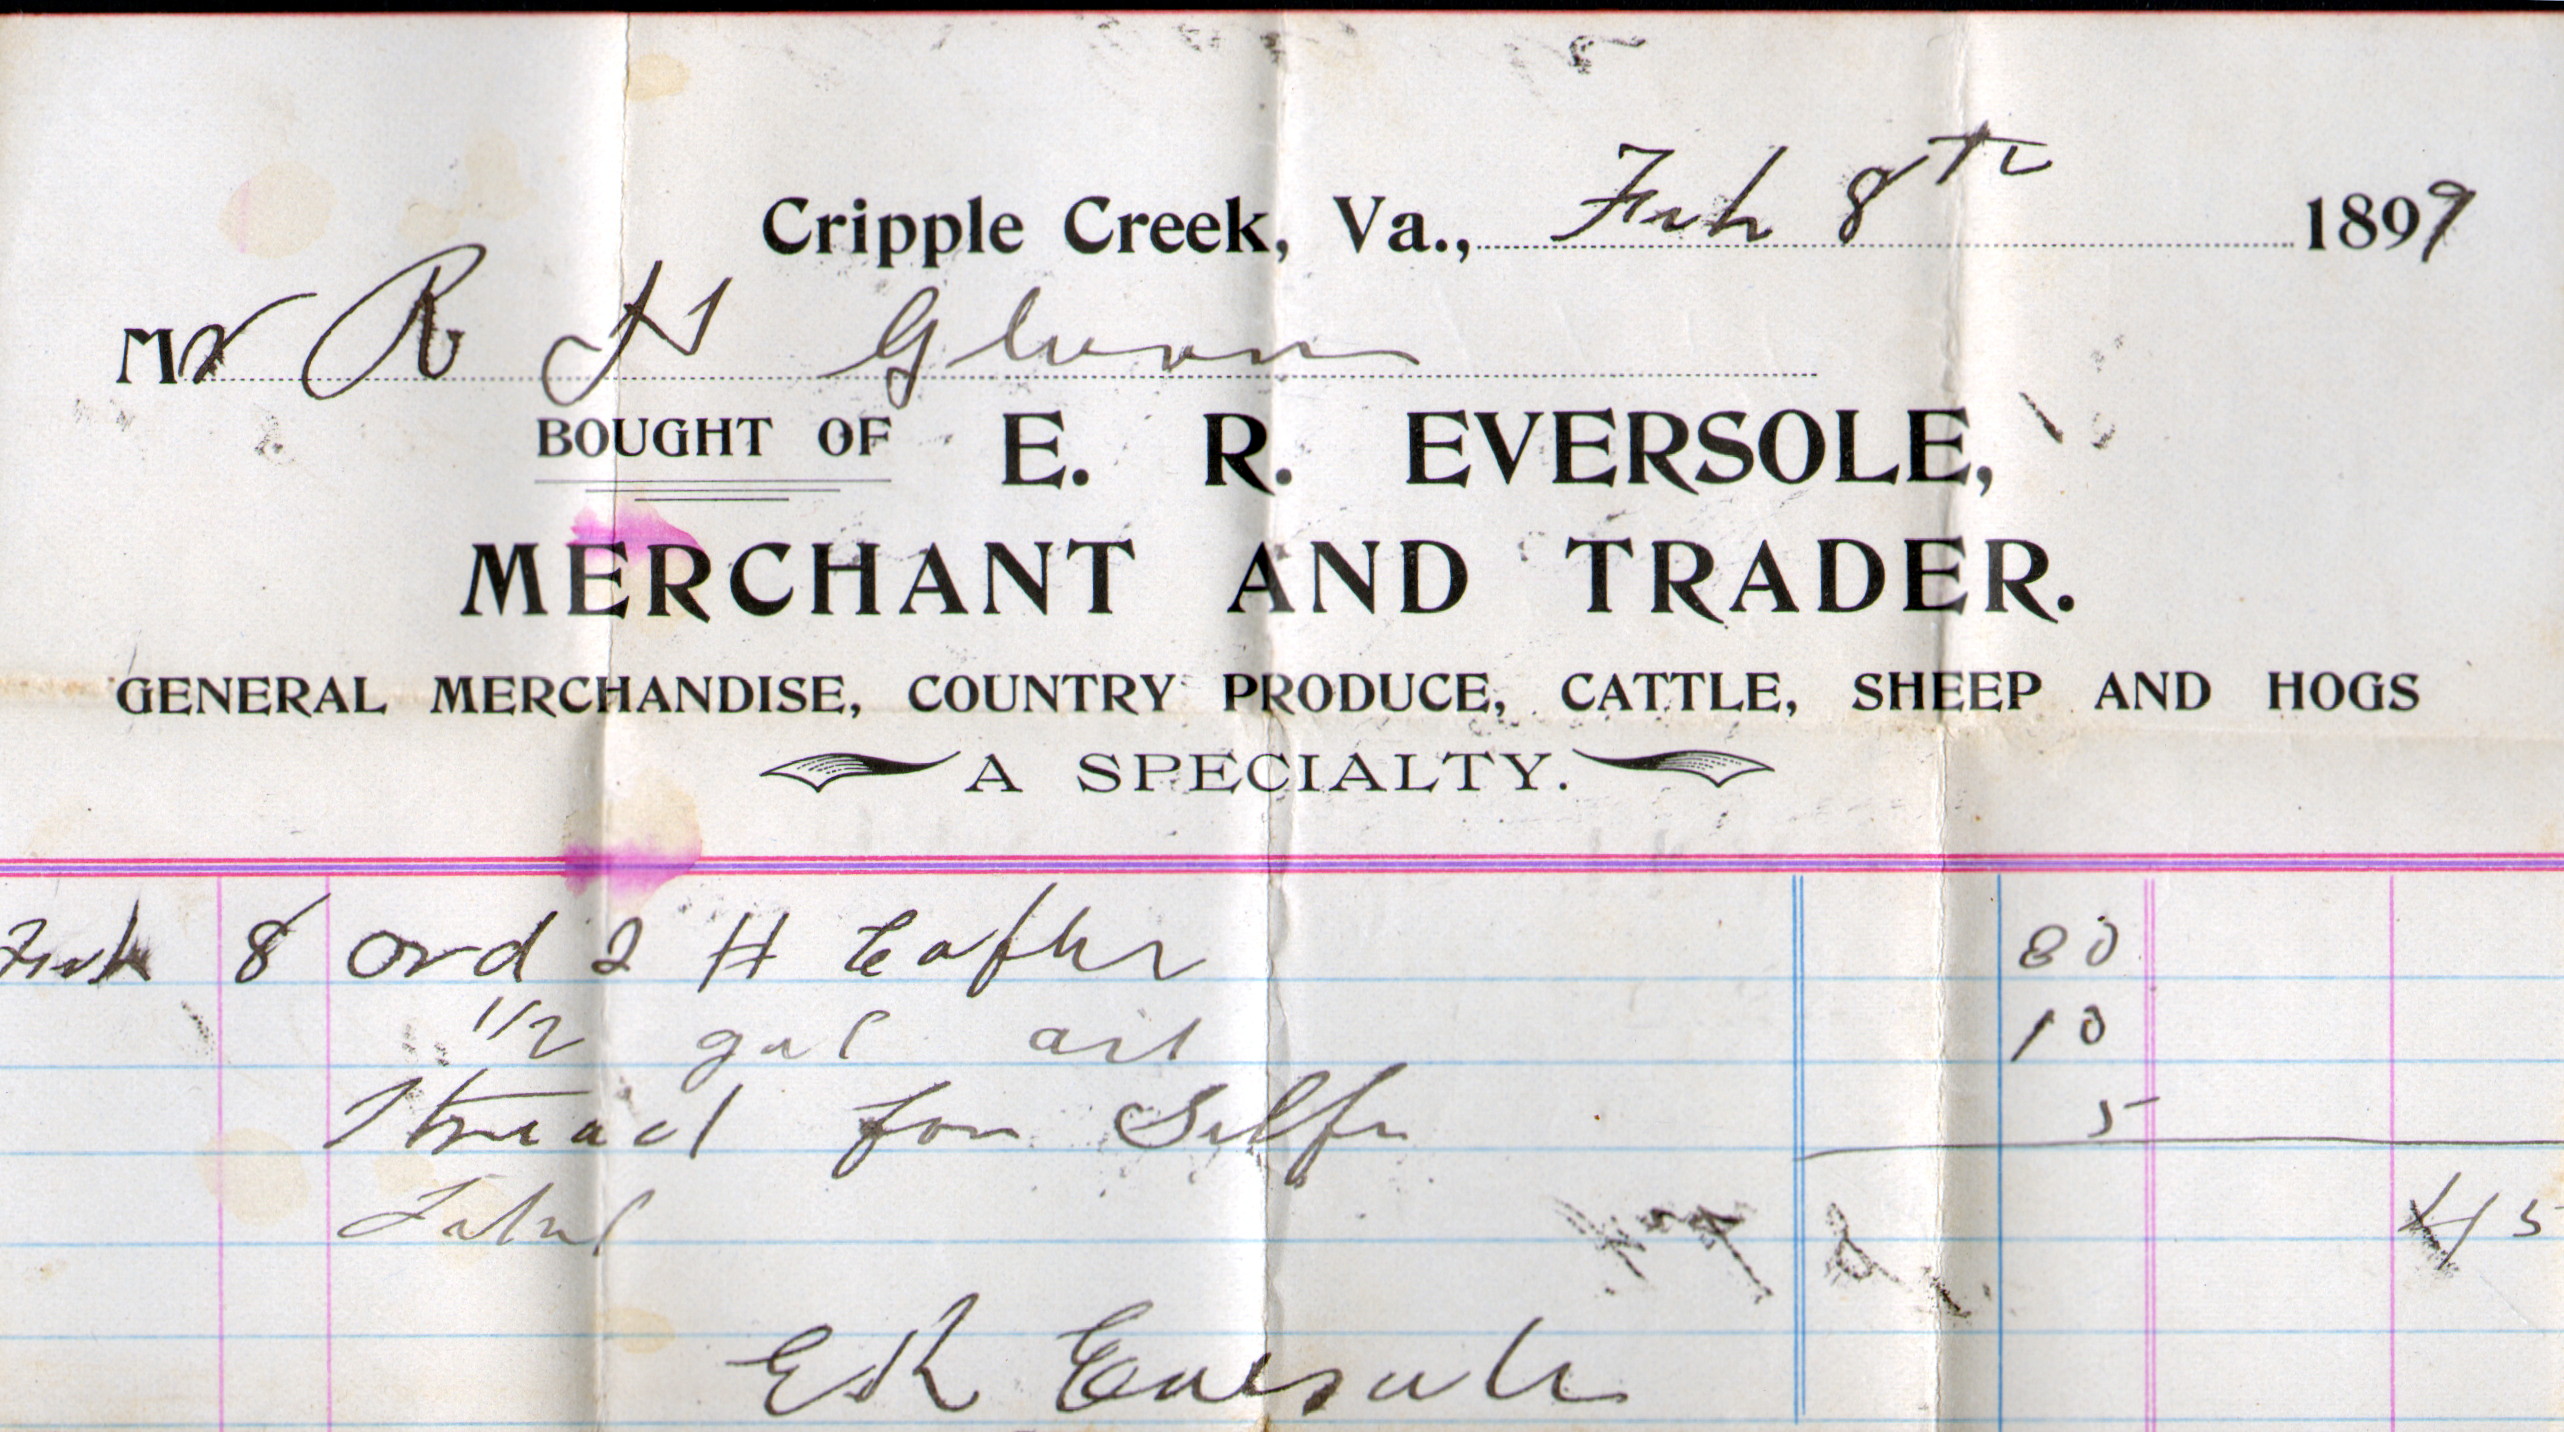 Cripple Creek, Va., Feb 8th 1899
Mr R H Gleaves
BOUGHT OF E. R. EVERSOLE,
MERCHANT AND TRADER.
GENERAL MERCHANDISE, COUNTRY PRODUCE, CATTLE, SHEEP AND HOGS
A SPECIALTY.
Feb 8 Ord 2 # Coffee 80
1/2 gal oil 10
Thread for Self 5
Total 45
E R Eversole